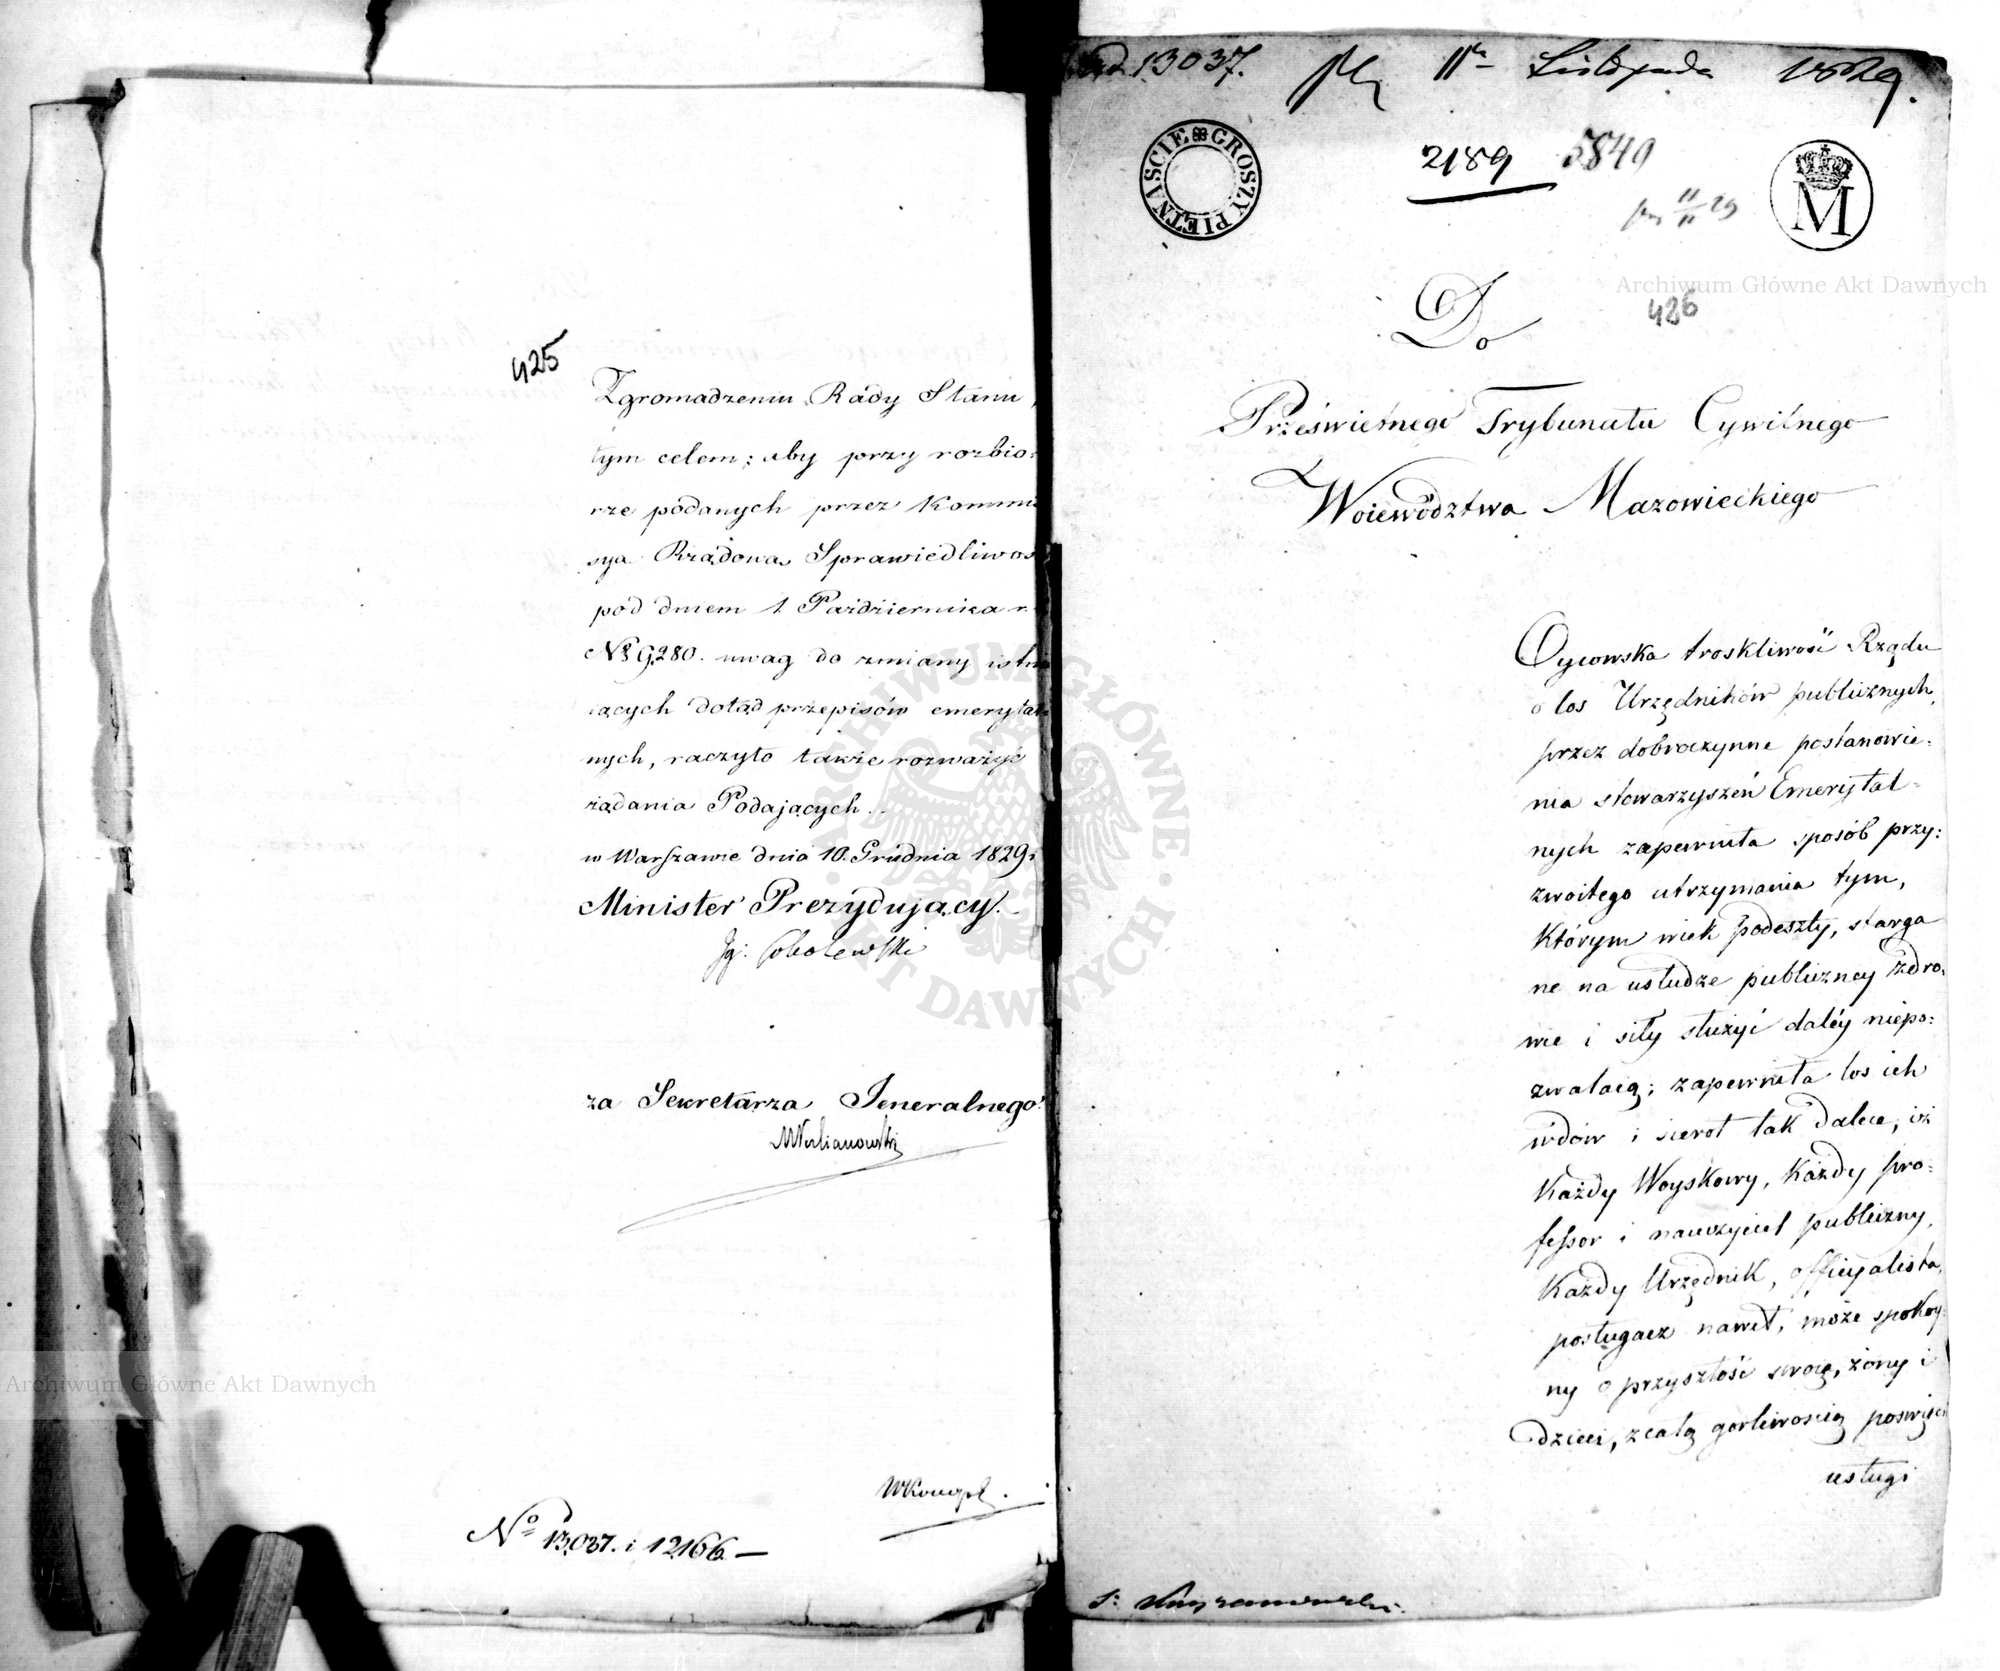 425
Zgromadzeniu Rady Stanu,
tym celem; aby przy rozbio:
rze podanych przez Kommi
sya Rządowa Sprawiedliwos
pod dniem 1 Października r.
No 9,280. uwag do zmiany istn
iących dotąd przepisów emerytal
nych, raczyło także rozważyć
żądania Podających.
w Warszawie dnia 10. Grudnia 1829 r
Minister Prezydujący.
Ig: Sobolewski
za Sekretarza Jeneralnego
No 13,037. i 12166 —
13037. 11 Listopada 1829.
GROSZY PIĘTNAŚCIE
2189 5849
11/11 29
M
426
Do
Prześwietnego Trybunału Cywilnego
Woiewództwa Mazowieckiego
Oycowska troskliwość Rządu
o los Urzędników publicznych,
przez dobroczynne postanowie:
nia stowarzyszeń Emerytal:
nych zapewniła sposób przy:
zwoitego utrzymania tym,
którym wiek podeszły, starga
ne na usłudze publiczney zdro:
wie i siły służyć daléy niepo:
zwalaią; zapewniła los ich
wdów i sierot tak dalece, iż
każdy Woyskowy, każdy pro:
fessor i nauczyciel publiczny,
każdy Urzędnik, officyalista,
posługacz nawet, może spokoy:
ny o przyszłość swoię, żony i
dzieci, z całą gorliwością poswięci
usługi
Archiwum Główne Akt Dawnych
Archiwum Główne Akt Dawnych